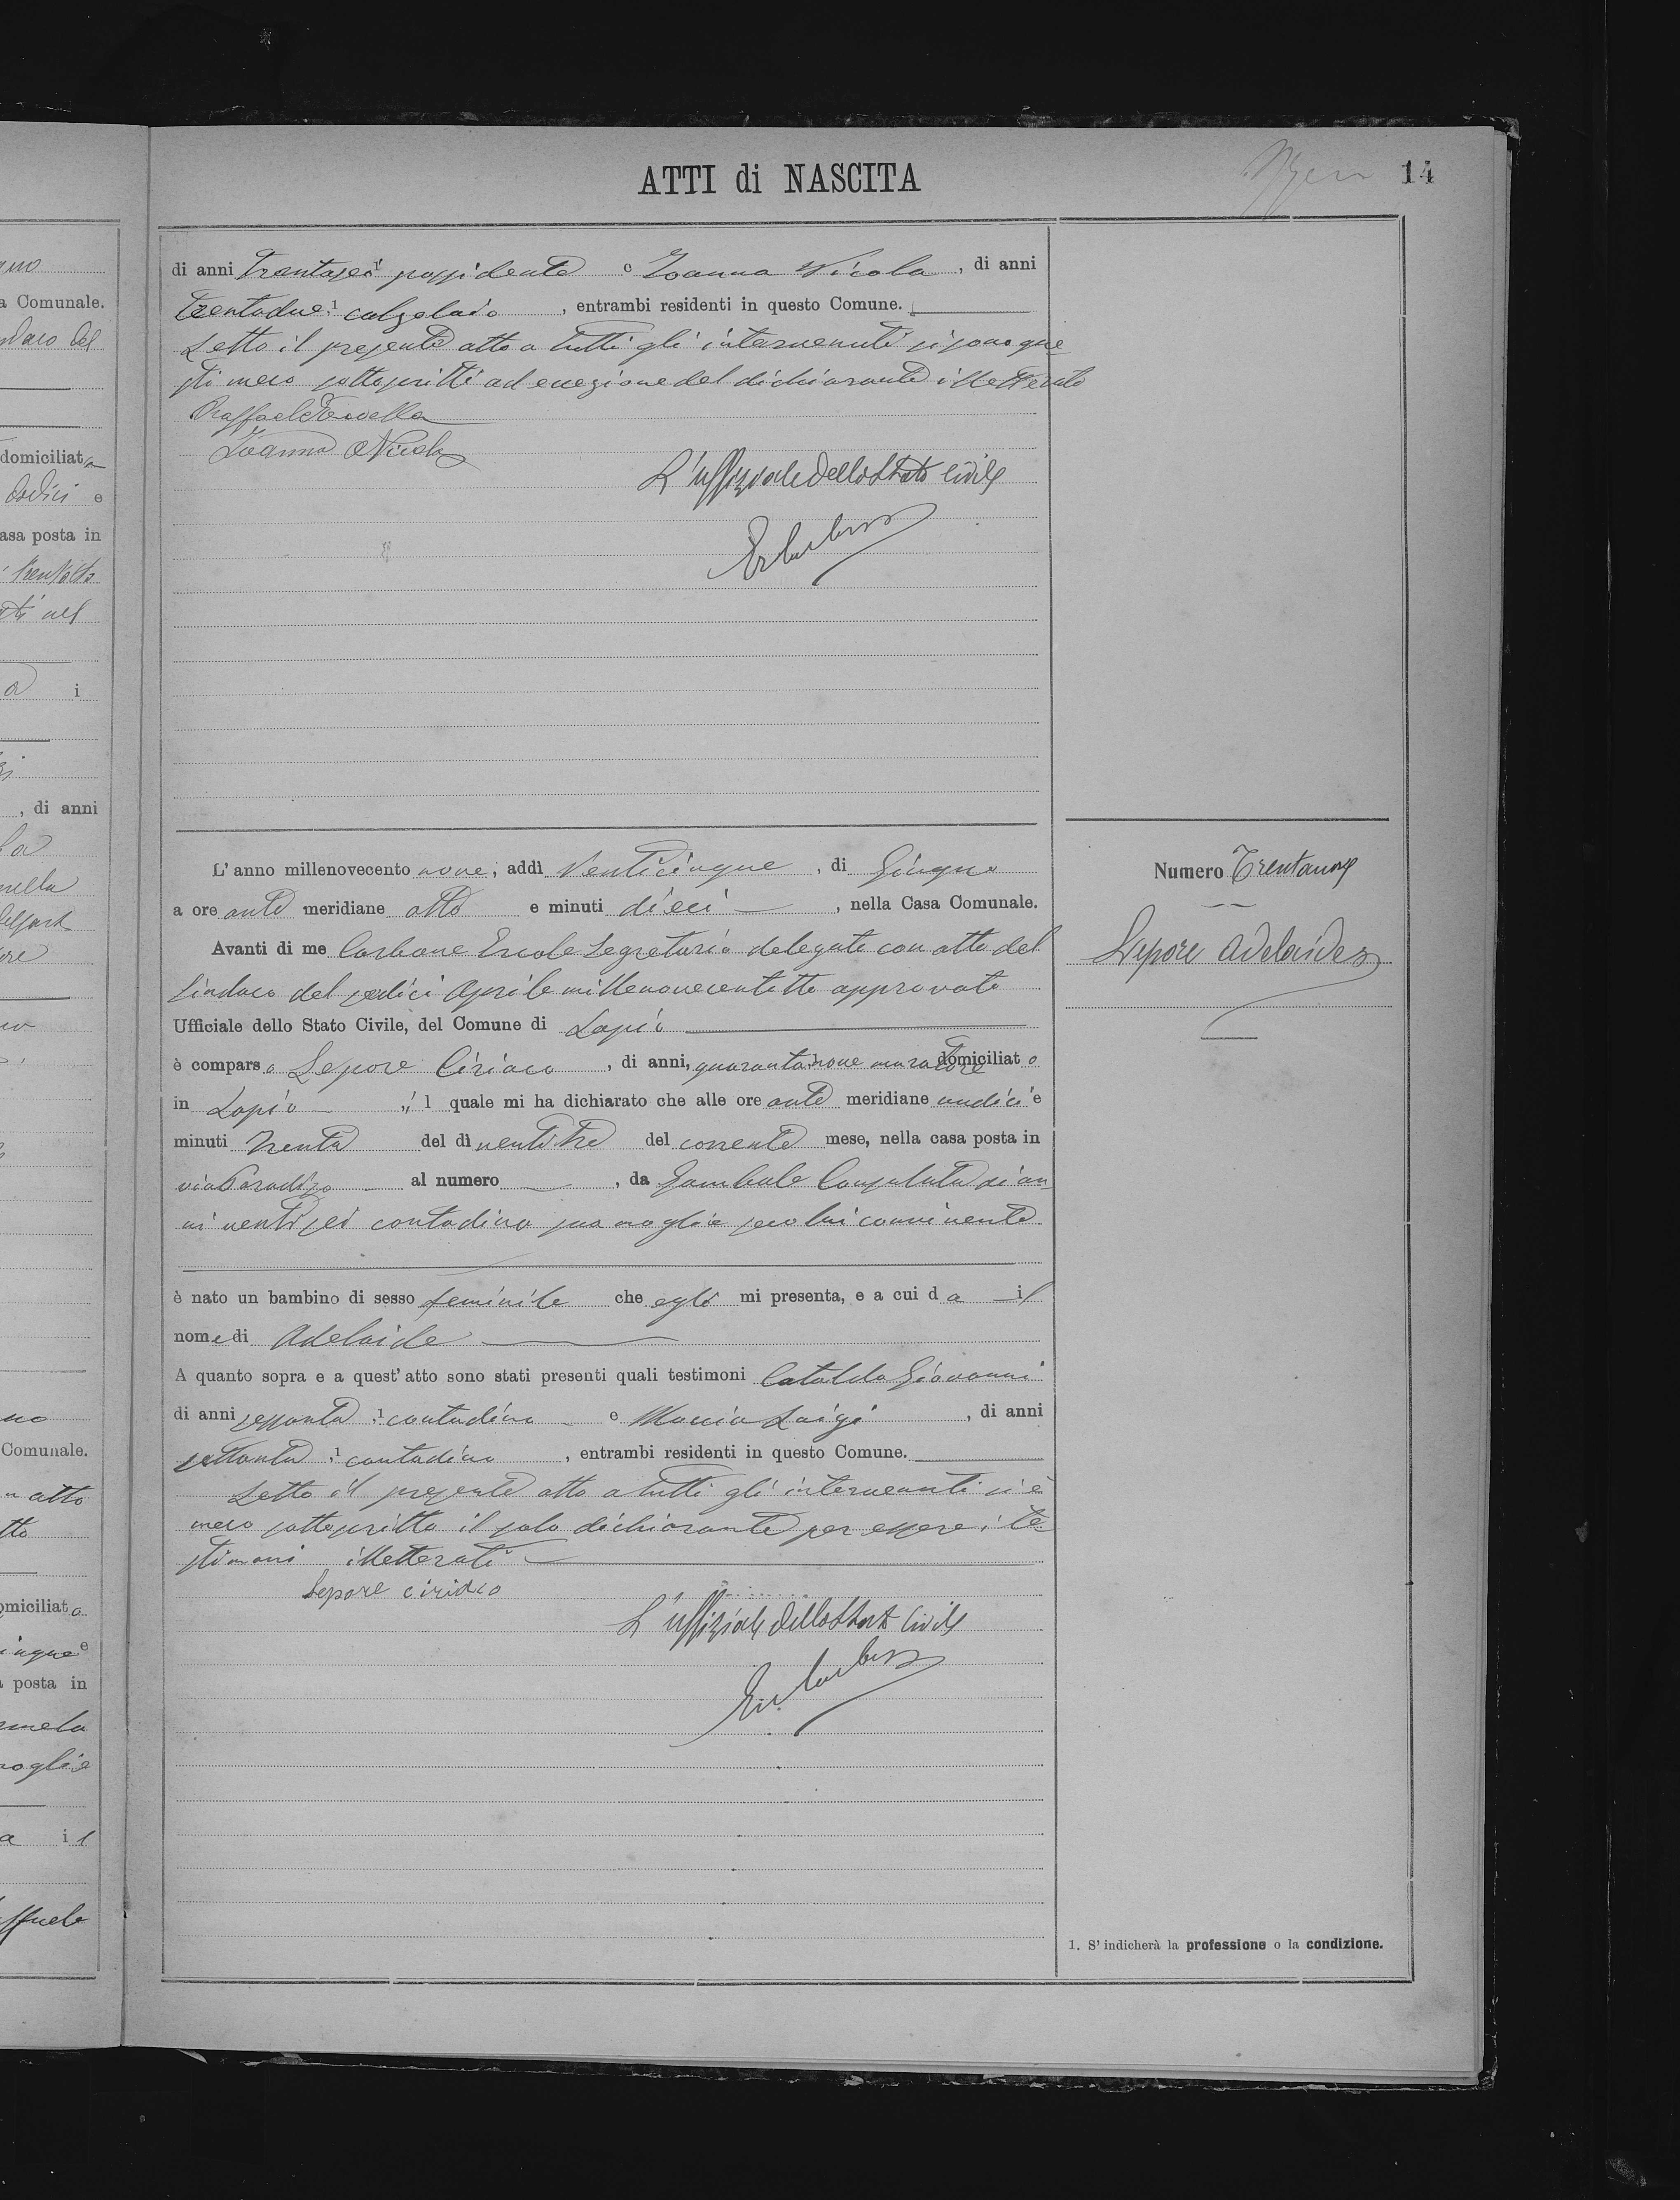 ATTI di NASCITA
14
di anni Trentasei possidente e Ioanna Nicola, di anni
trentadue 1 calzolaio, entrambi residenti in questo Comune.
Letto il presente atto a tutti gli intervenuti si sono que
sti meco sottoscritti ad eccezione del dichiarante illetterato
Raffaele
Ioanna Nicola
L'uffiziale dello Stato Civile
L'anno millenovecento nove, addì Venticinque, di Giugno
a ore ante meridiane otto e minuti dieci, nella Casa Comunale.
Avanti di me Carbone Ercole Segretario delegato con atto del
Sindaco del sedici Aprile millenovecentotto approvato
Ufficiale dello Stato Civile, del Comune di Lapio
è comparso Lepore Ciriaco, di anni, quarantanove muratore domiciliato
in Lapio, il quale mi ha dichiarato che alle ore ante meridiane undici e
minuti trenta del dì ventitre del corrente mese, nella casa posta in
via Paradiso al numero, da Gambale Consolata di an
ni ventisei contadina sua moglie seco lui convivente
è nato un bambino di sesso feminile che egli mi presenta, e a cui da il
nome di Adelaide
A quanto sopra e a quest' atto sono stati presenti quali testimoni Cataldo Giovanni
di anni sessanta 1 contadino e Maccia Luigi, di anni
settanta 1 contadino, entrambi residenti in questo Comune.
Letto il presente atto a tutti gli intervenuti si è
meco sottoscritto il solo dichiarante per essere i te
stimoni illetterati
Lepore ciriaco
L'uffiziale dello Stato Civile
Numero Trentanove
Lepore Adelaide
1. S' indicherà la professione o la condizione.